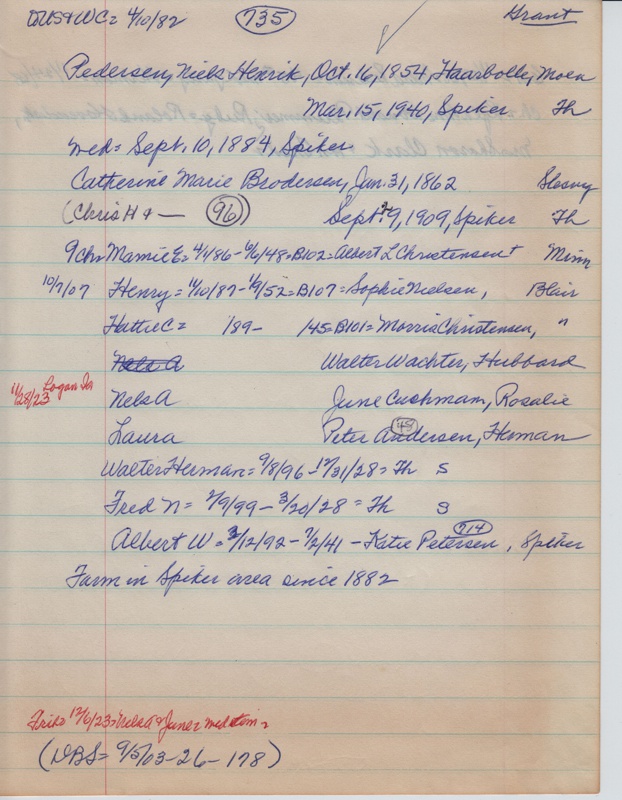 US & WC = 4/10/82 735 Grant
Pedersen, Niels Henrik, Oct. 16, 1854, Haarbolle, Moen
Mar, 15, 1940, Spiker Th
Wed = Sept. 10, 1884, Spiker
Catherine Marie Brodersen, Jan. 31, 1862 Slesvig
(Chris H & — 96) Sept. 29, 1909, Spiker Th
9ch = Mamie E = 4/1/86 - 6/6/48 = B102 = Albert L Christensen + Minn
10/7/07 Henry = 11/10/87 - 1/9/52 = B107 = Sophie Nielsen, Blair
Hattie C = /89 - /45 = B101 = Morris Christensen, "
Nels A Walter Wachter, Hubbard
11/28/23 Logan Ia Nels A June Cushmam, Rosalie
Laura Peter Andersen, Herman 48
Walter Herman = 9/8/96 - 12/31/28 = Th S
Fred N = 2/9/99 - 3/20/28 = Th S
Albert W = 3/12/92 - 7/2/41 - Katie Petersen 714, Spiker
Farm in Spiker area since 1882
12/6/23 = Nels A & June =
(DBS = 9/5/03-26-178)